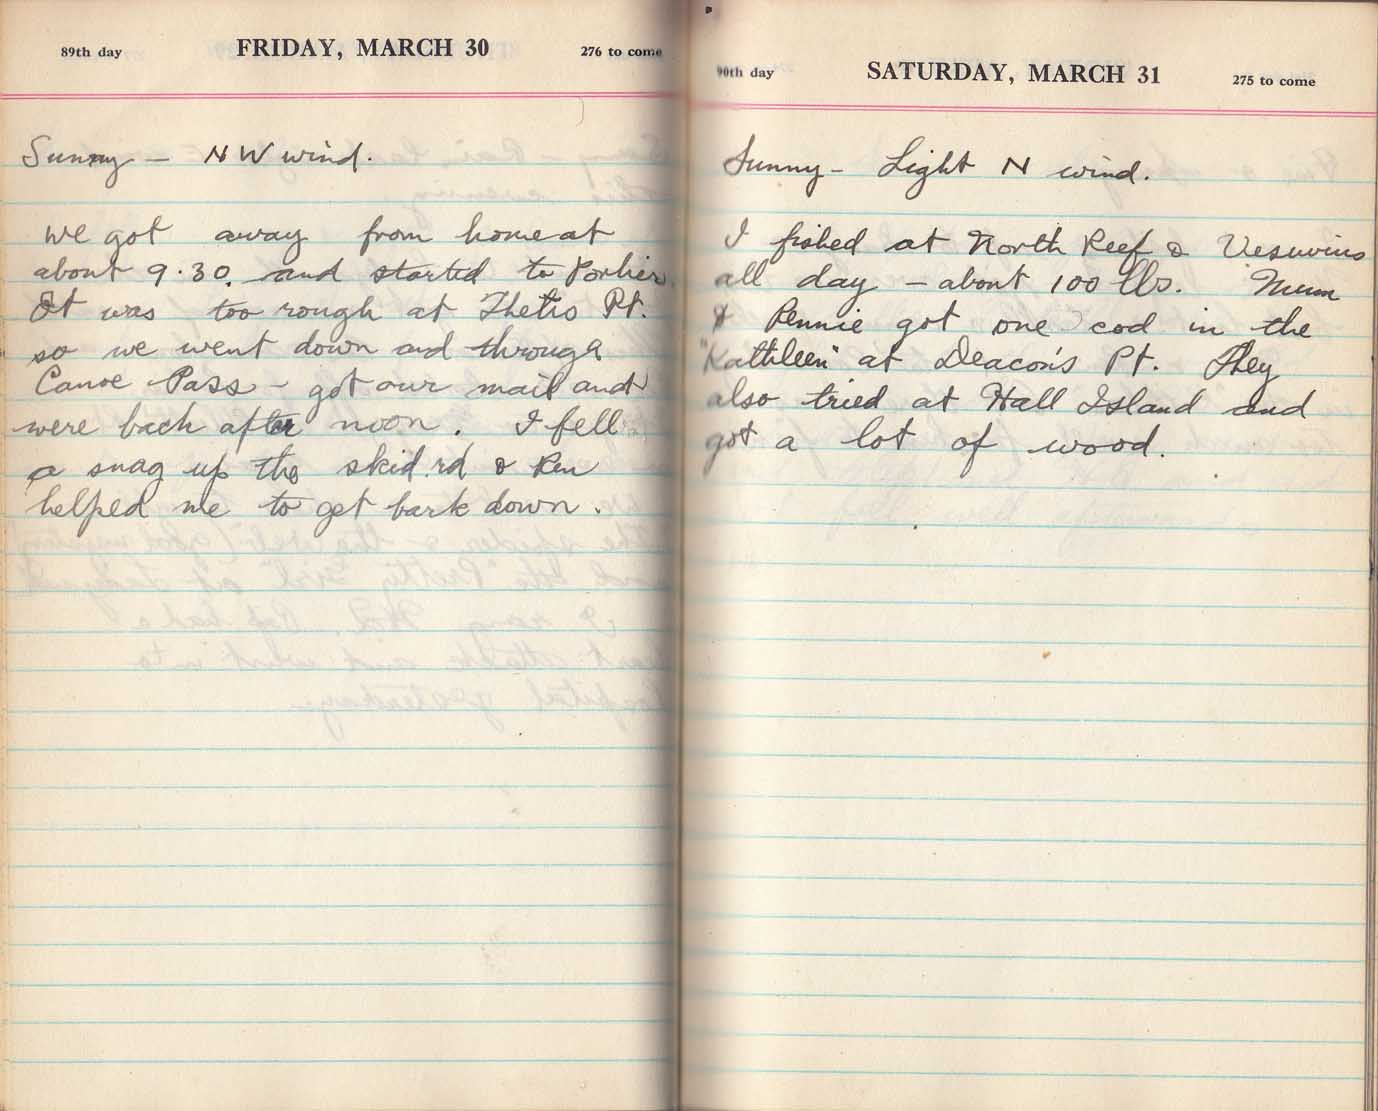 89th day FRIDAY, MARCH 30 276 to come
Sunny — NW wind.
We got away from home at
about 9.30. and started to Porlier
It was too rough at Thetis Pt.
so we went down and through
Canoe Pass - got our mail and
were back after noon. I fell
a snag up the skid rd & Ken
helped me to get bark down.
90th day SATURDAY, MARCH 31 275 to come
Sunny - Light N wind.
I fished at North Reef & Vesuvius
all day - about 100 lbs. Mum
& Rennie got one cod in the
"Kathleen" at Deacon's Pt. They
also tried at Hall Island and
got a lot of wood.